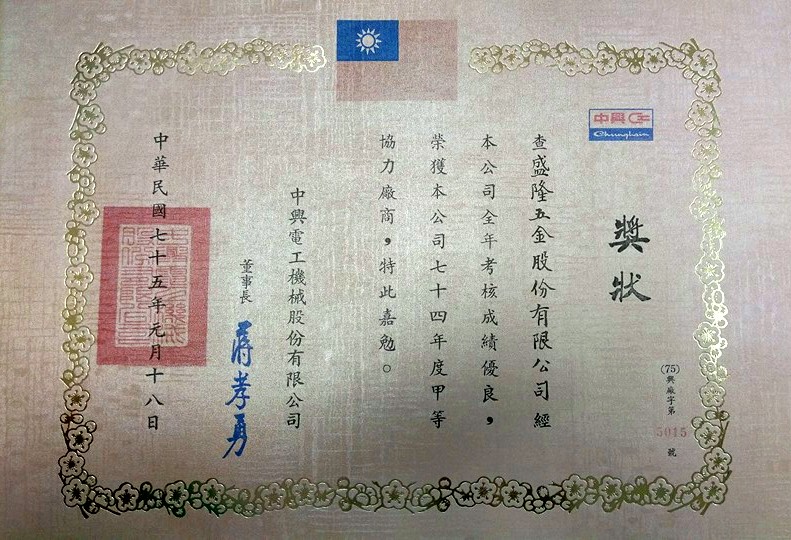 中興
Chunghsin
獎狀
(75)興廠字第5015號
查盛隆五金股份有限公司經
本公司全年考核成績優良，
榮獲本公司七十四年度甲等
協力廠商，特此嘉勉。
中興電工機械股份有限公司
董事長 蔣孝勇
中華民國七十五年元月十八日